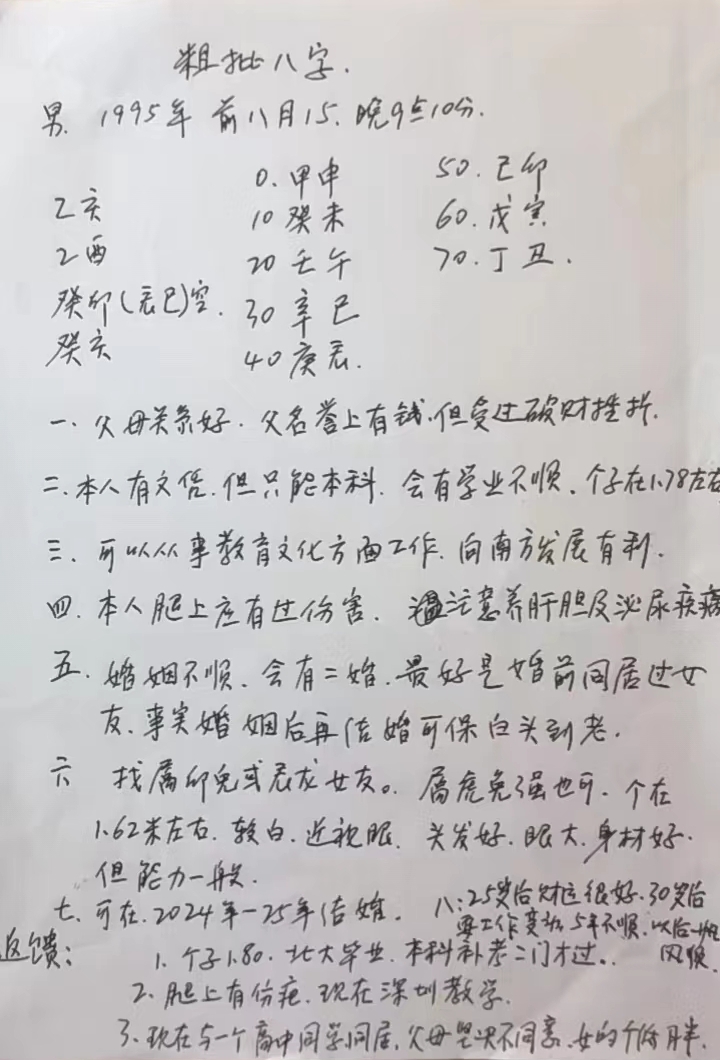 粗批八字.
男. 1995年 前八月15. 晚9点10分.
乙亥
乙酉
癸卯(辰巳)空.
癸亥
0. 甲申
10 癸未
20 壬午
30 辛巳
40 庚辰.
50. 己卯
60. 戊寅
70. 丁丑.
一. 父母关系好. 父名誉上有钱. 但受过破财挫折.
二. 本人有文凭. 但只能本科. 会有学业不顺. 个子在1.78左右
三. 可以从事教育文化方面工作. 向南方发展有利.
四. 本人腿上应有过伤害. 注意养肝胆及泌尿疾病
五. 婚姻不顺. 会有二婚. 最好是婚前同居过女
友. 事实婚姻后再结婚可保白头到老.
六 找属卯兔或辰龙女友。属虎兔强也可. 个在
1.62米左右. 较白. 近视眼. 头发好. 眼大. 身材好.
但能力一般.
七. 可在. 2024年-25年结婚.
八: 25岁后财运很好. 30岁后
要工作变动 5年不顺. 以后一帆
风顺.
返馈:
1. 个子1.80. 北大毕业. 本科补考二门才过..
2. 腿上有伤疤. 现在深圳教学.
3. 现在与一个高中同学同居. 父母坚决不同意. 女的个低胖.